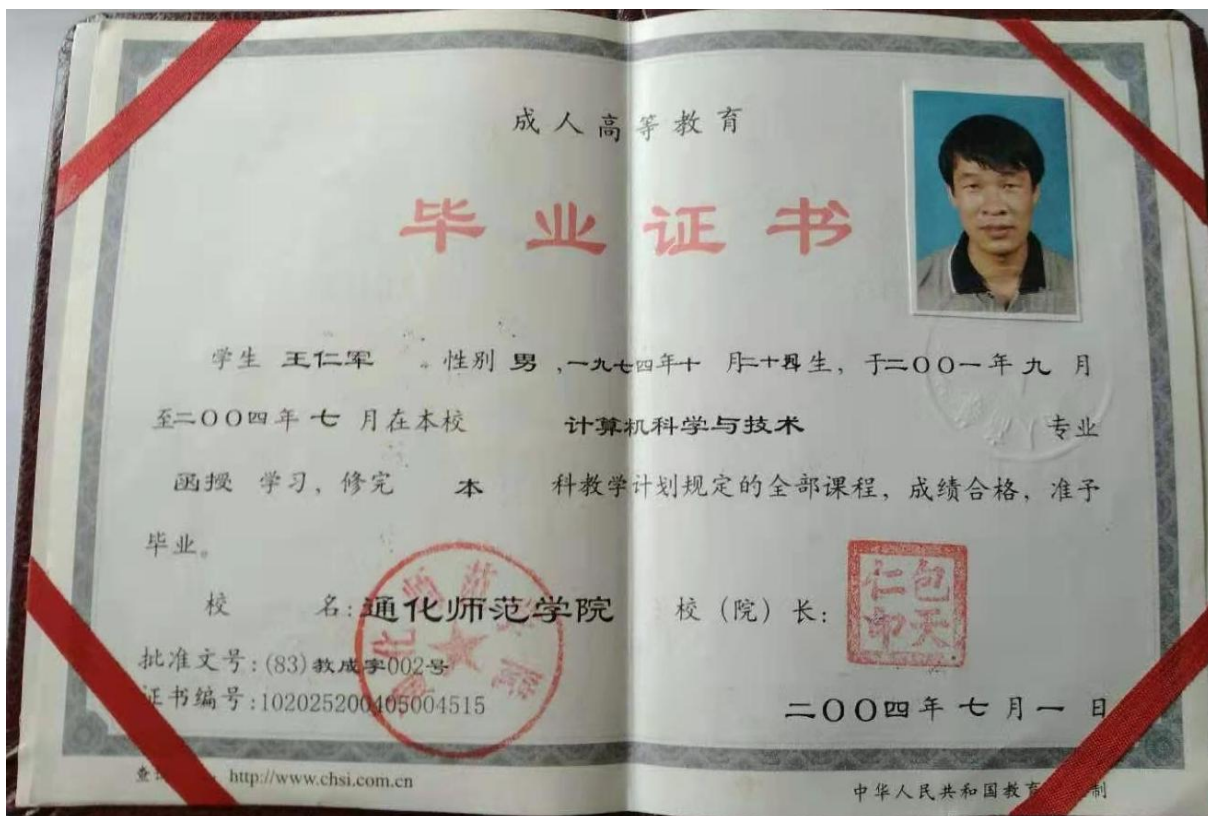 成人高等教育
毕业证书
学生 王仁军 性别 男，一九七四年十 月二十四生，于二〇〇一年九 月
至二〇〇四年七 月在本校 计算机科学与技术 专业
函授 学习，修完 本 科教学计划规定的全部课程，成绩合格，准予
毕业。
校 名：通化师范学院 校（院）长：
包天仁印
批准文号：(83)教成字002号
证书编号：102025200405004515
二〇〇四年七月一日
查 http://www.chsi.com.cn
中华人民共和国教育 制